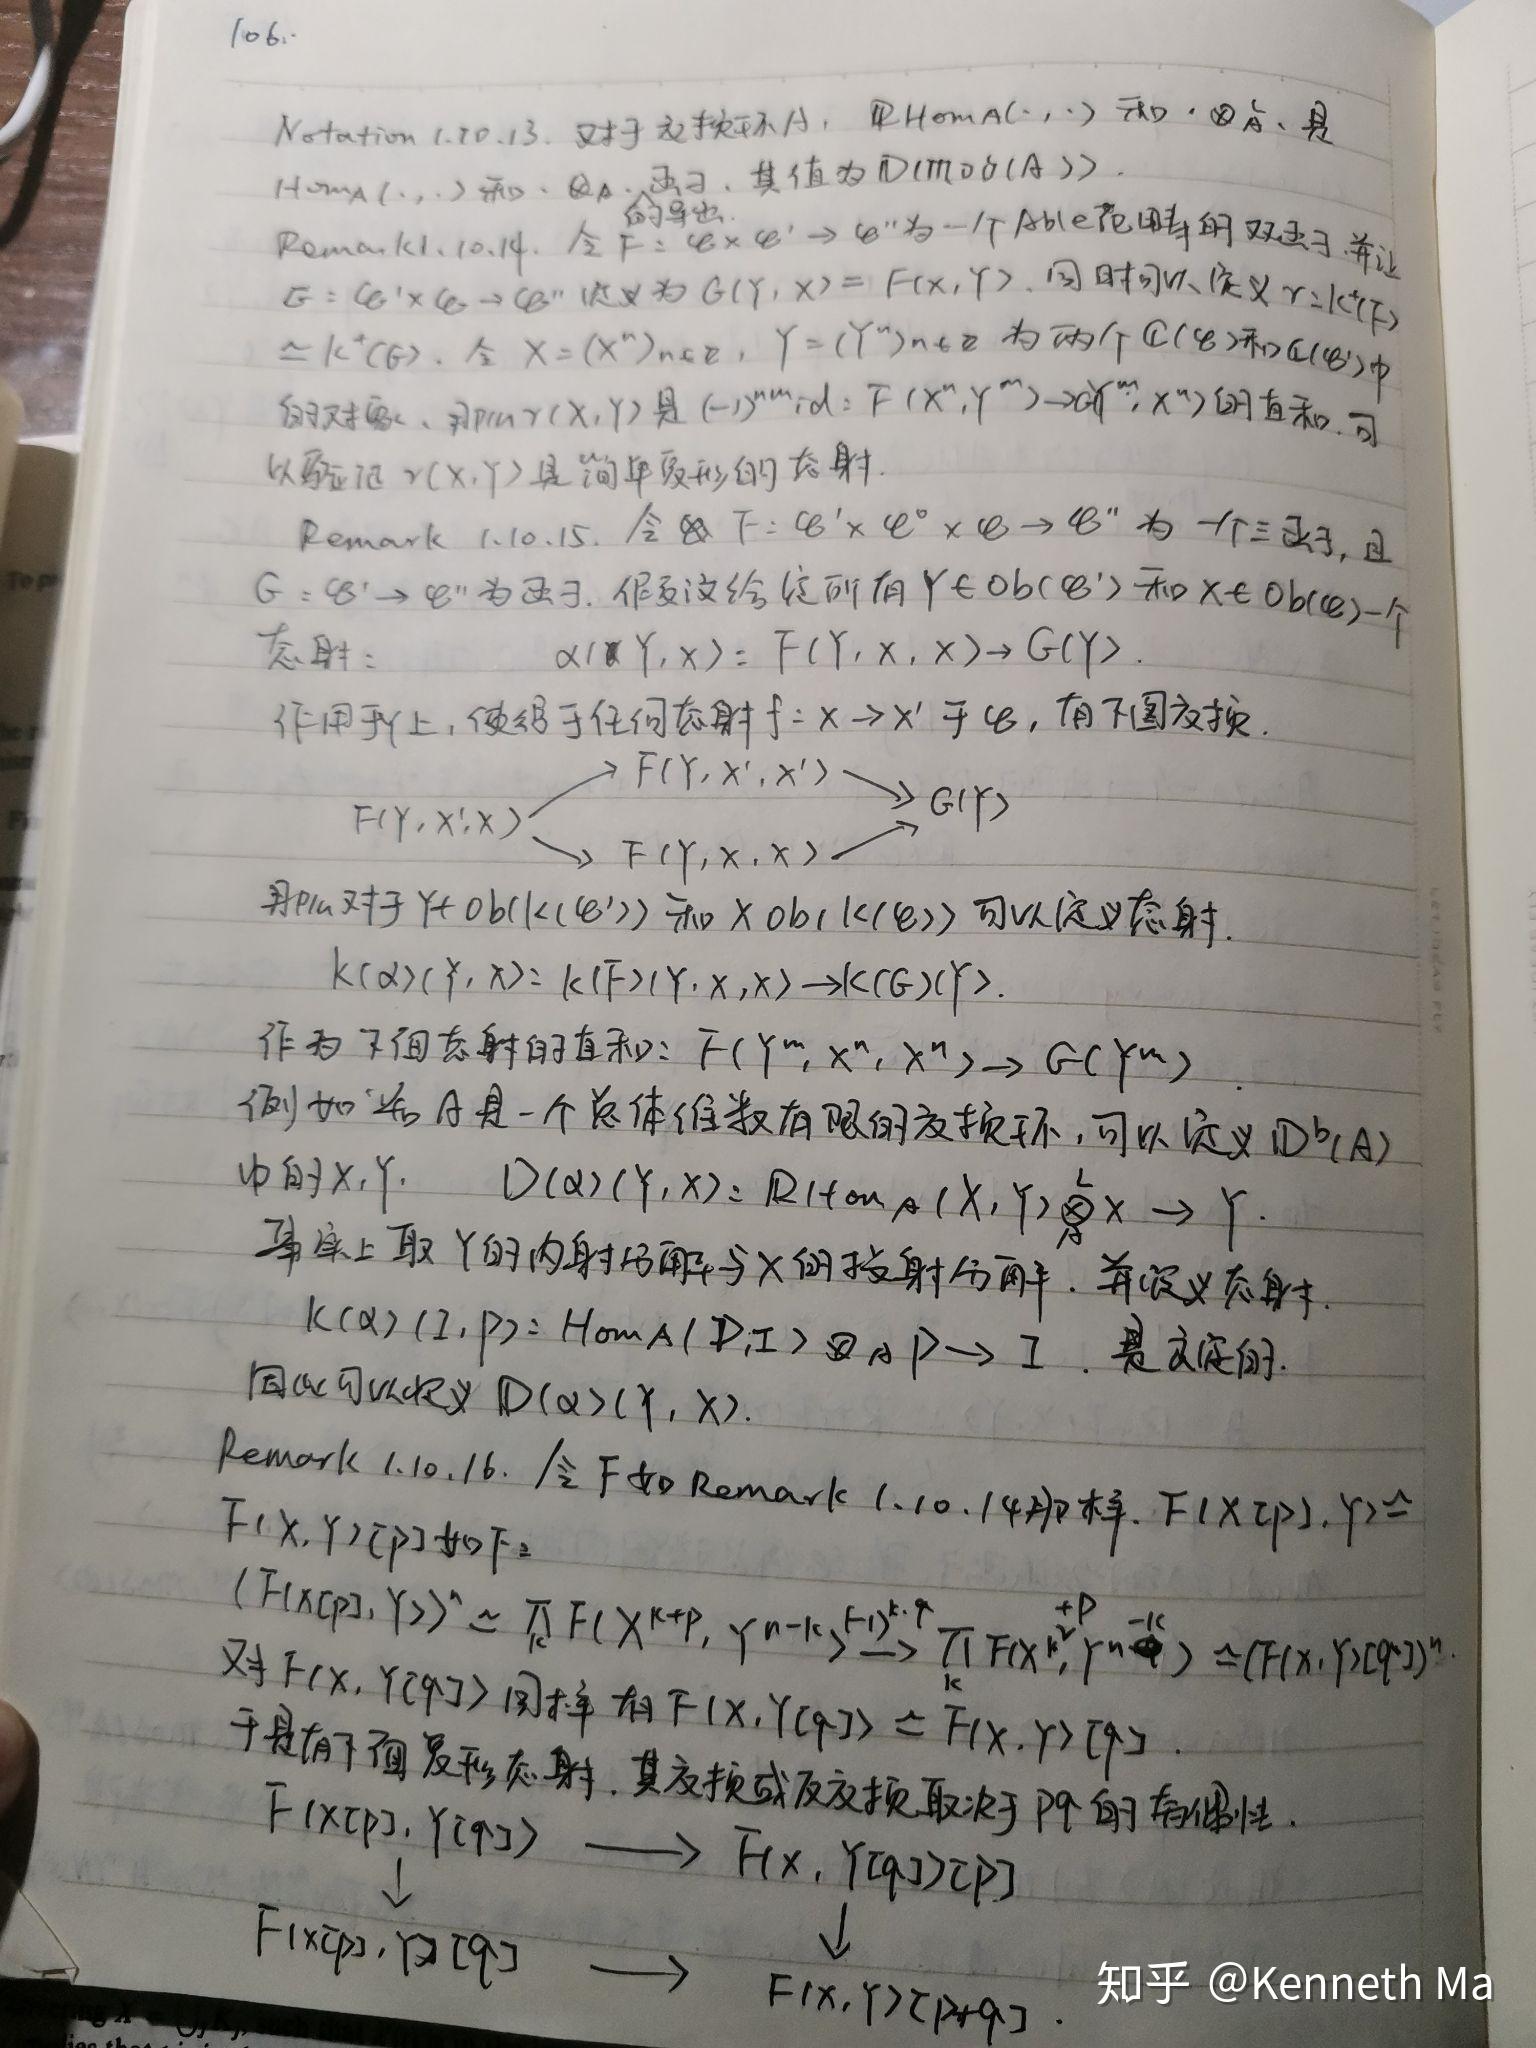 106.
Notation 1.10.13. 对于交换环A, RHomA(·,·) 和 ·⊗ᴸA· 是
HomA(·,·) 和 ·⊗A· 的导出 函子, 其值为 D(Mod(A)).
Remark 1.10.14. 令 F: 𝒞×𝒞'→𝒞'' 为一个Able范畴的双函子, 并让
G: 𝒞'×𝒞→𝒞'' 定义为 G(Y,X)=F(X,Y). 同时可以定义 r: K⁺(F)
≃K⁺(G). 令 X=(Xⁿ)n∈Z, Y=(Yⁿ)n∈Z 为两个 C(𝒞)和C(𝒞')中
的对象, 那么 r(X,Y) 是 (-1)ⁿᵐid: F(Xⁿ,Yᵐ)→G(Yᵐ,Xⁿ) 的直和. 可
以验证 r(X,Y) 是简单复形的态射.
Remark 1.10.15. 令 F: 𝒞'×𝒞°×𝒞→𝒞'' 为一个三函子, 且
G: 𝒞'→𝒞'' 为函子. 假设给定所有 Y∈Ob(𝒞') 和 X∈Ob(𝒞) 一个
态射: α(Y,X): F(Y,X,X)→G(Y).
作用于Y上, 使得于任何态射 f: X→X' 于 𝒞, 有下图交换.
F(Y,X',X')
F(Y,X',X) G(Y)
F(Y,X,X)
那么对于 Y∈Ob(K(𝒞')) 和 X Ob(K(𝒞)) 可以定义态射.
K(α)(Y,X): K(F)(Y,X,X)→K(G)(Y).
作为下面态射的直和: F(Yᵐ,Xⁿ,Xⁿ)→G(Yᵐ).
例如 若 A是一个总体维数有限的交换环, 可以定义 Dᵇ(A)
中的 X,Y. D(α)(Y,X): RHomA(X,Y)⊗ᴸA X→Y.
事实上取 Y的内射分解与X的投射分解. 并定义态射.
K(α)(I,P): HomA(P,I)⊗A P→I. 是 定的.
因此可以定义 D(α)(Y,X).
Remark 1.10.16. 令 F如Remark 1.10.14那样. F(X[p],Y)≃
F(X,Y)[p] 如下:
(F(X[p],Y))ⁿ ≃ ∏k F(Xᵏ⁺ᵖ,Yⁿ⁻ᵏ) →
对于 F(X,Y[q]) 同样有 F(X,Y[q])≃F(X,Y)[q].
于是有下面复形态射. 其交换或反交换取决于 pq 的奇偶性.
F(X[p],Y[q]) → F(X,Y[q])[p]
↓ ↓
F(X[p],Y)[q] → F(X,Y)[p+q].
知乎 @Kenneth Ma